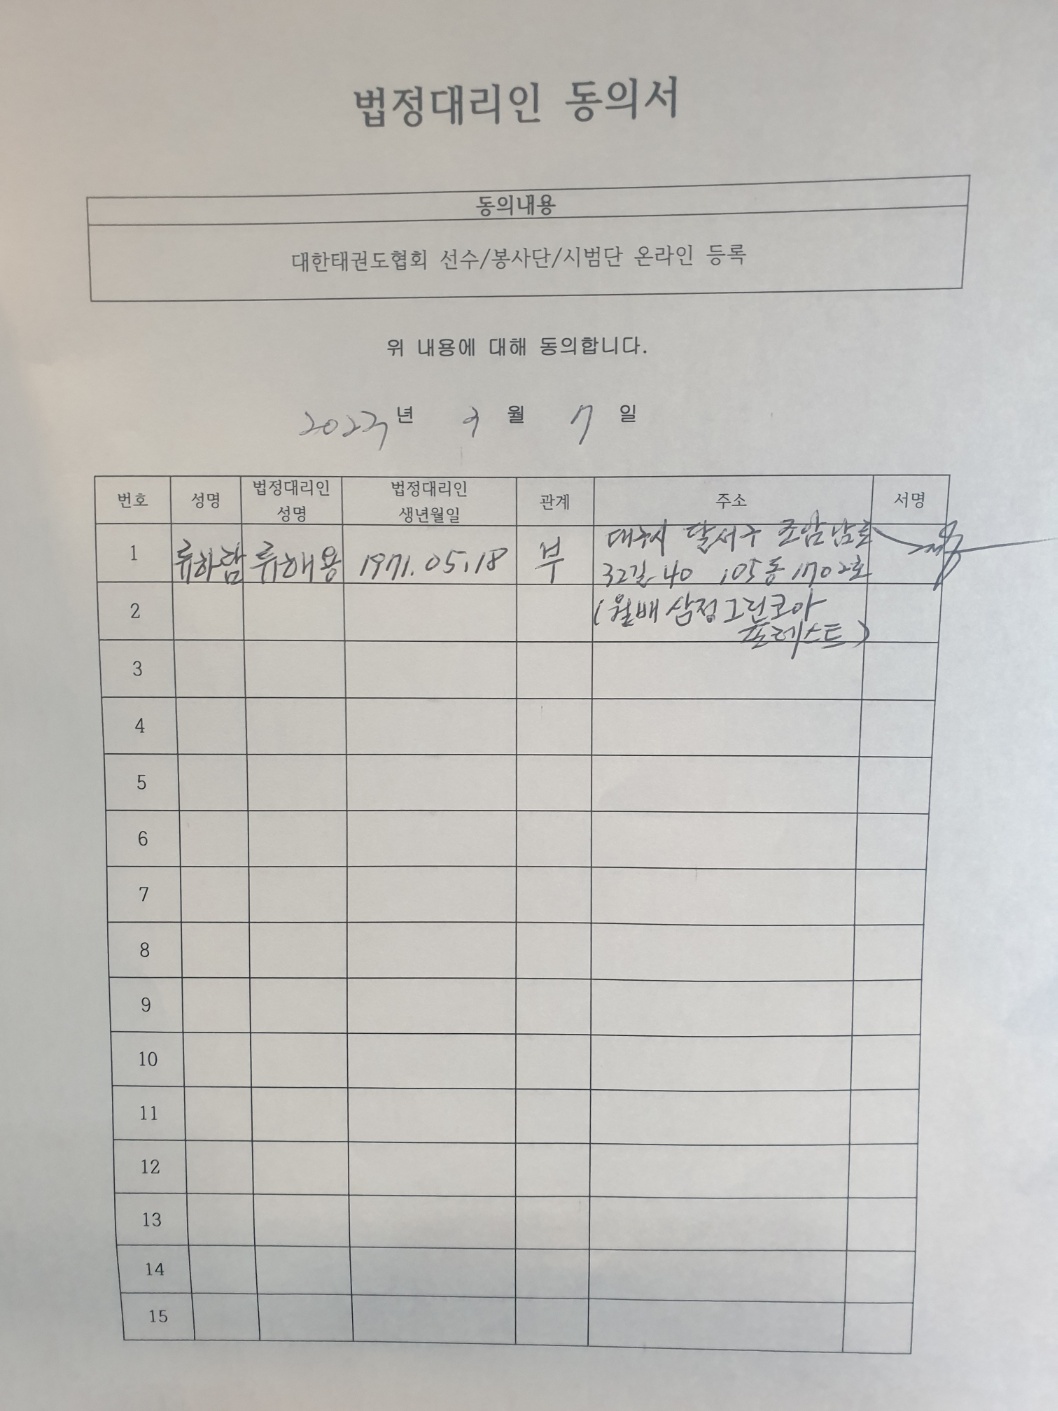 법정대리인 동의서
동의내용
대한태권도협회 선수/봉사단/시범단 온라인 등록
위 내용에 대해 동의합니다.
2023년 2월 7일
번호 성명 법정대리인 성명 법정대리인 생년월일 관계 주소 서명
1 류하람 류해용 1971.05.18 부 대구시 달서구 조암남로
32길 40 105동 1702호
2 (월배삼정그린코아
포레스트)
3
4
5
6
7
8
9
10
11
12
13
14
15